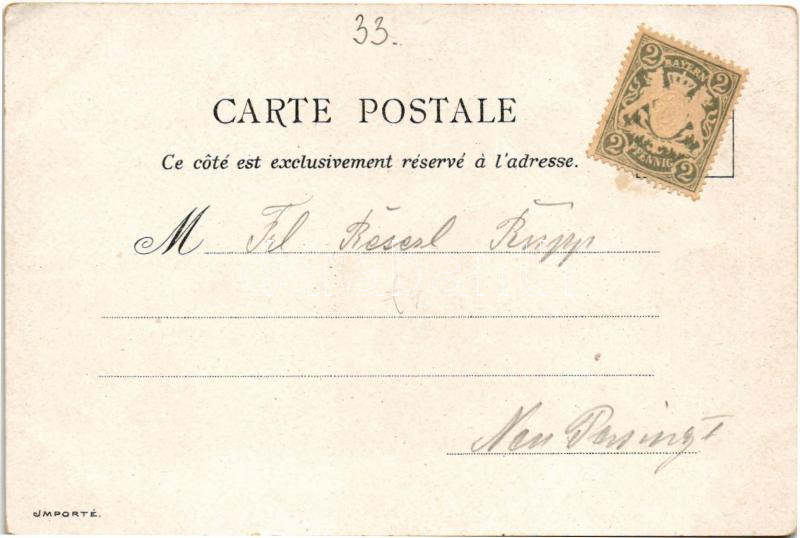 33.
2 BAYERN 2
2 PFENNIG 2
CARTE POSTALE
Ce côté est exclusivement réservé à l'adresse.
M Frl Réserl Rupp
Neu Pasing I
JMPORTÉ.